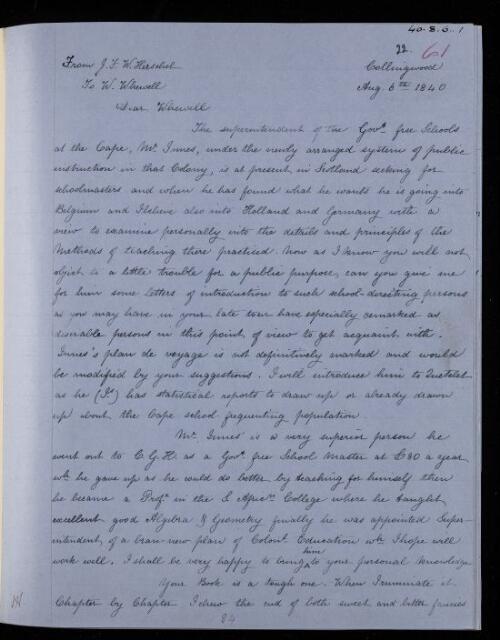 40.8.6.1
22. 61
From J. F. W. Herschel
Collingwood
To W. Whewell
Aug. 6th 1840
Dear Whewell
The superintendent of the Govt. free Schools
at the Cape, Mr. Innes, under the newly arranged system of public
instruction in that Colony, is at present in Scotland seeking for
schoolmasters and when he has found what he wants he is going into
Belgium and I believe also into Holland and Germany with a
view to examine personally into the details and principles of the
Methods of teaching there practised. Now as I know you will not
object to a little trouble for a public purpose, can you give me
for him some letters of introduction to such school-directing persons
as you may have in your late tour have especially remarked as
desirable persons in this point of view to get acquaintd. with.
Innes's plan de voyage is not definitively marked and would
be modified by your suggestions. I will introduce him to Quetelet
as he (I.) has statistical reports to draw up or already drawn
up about the Cape school frequenting population.
Mr. Innes is a very superior person he
went out to C.G.H. as a Govt. free School Master at £80 a year
wh. he gave up as he could do better by teaching for himself then
he became a Profr. in the S. Africn. College where he taught
excellent good Algebra & Geometry finally he was appointed Super-
intendent of a bran-new plan of Colonl. Education wh. I hope will
work well. I shall be very happy to bring him to your personal knowledge
Your Book is a tough one. When I ruminate it
Chapter by Chapter I chew the cud of both sweet and bitter fancies
84